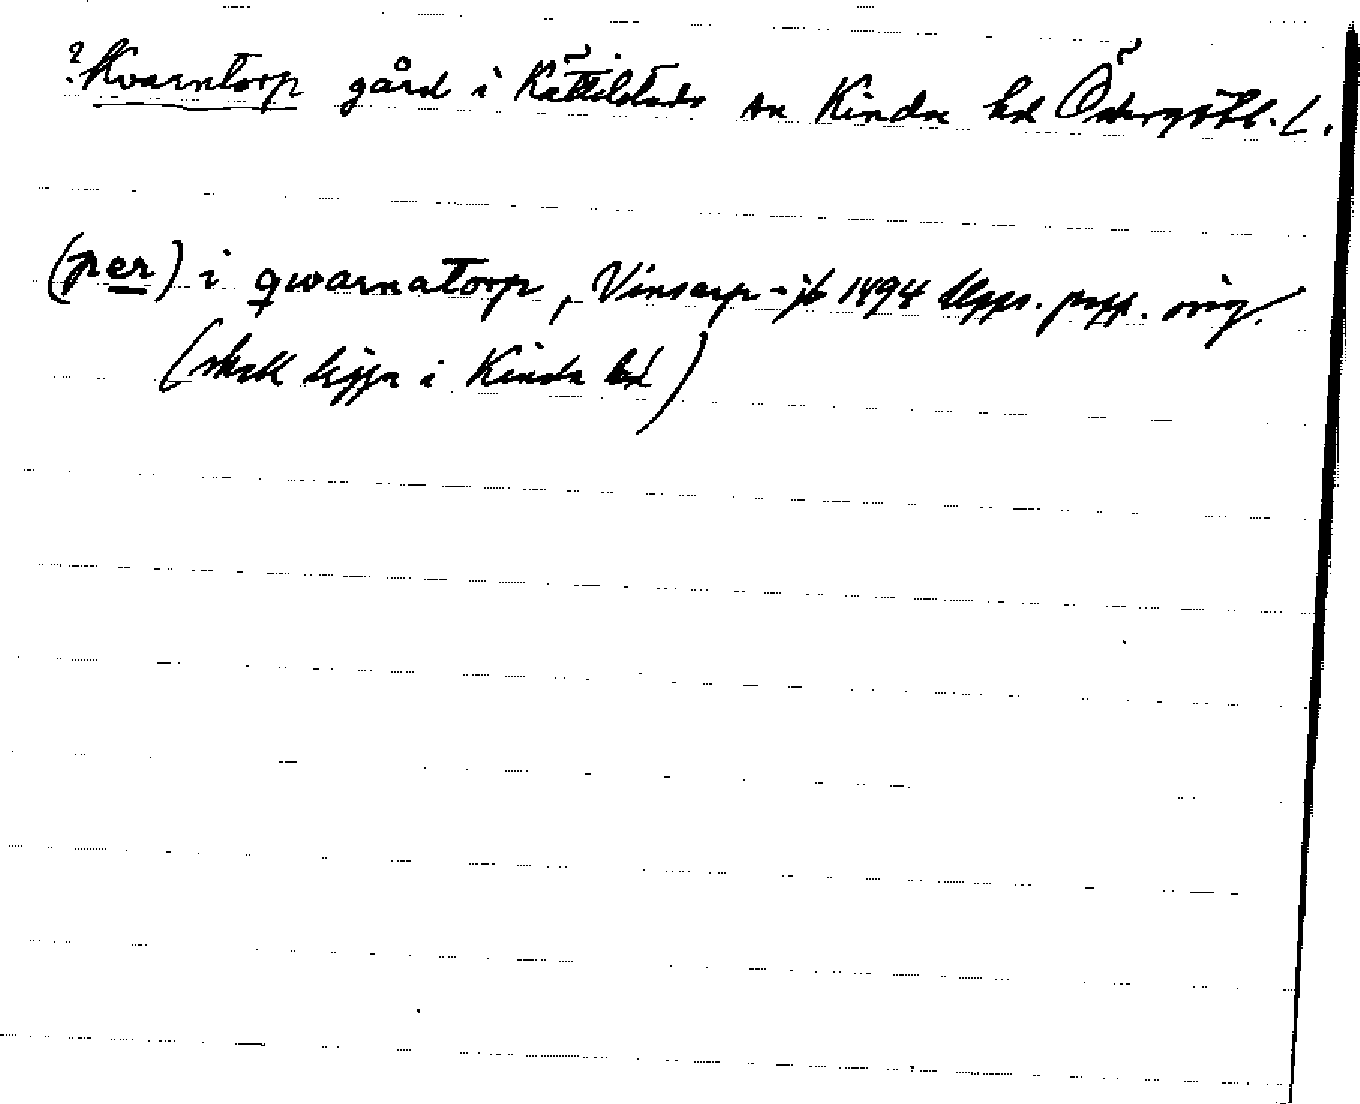 ? Kvarntorp gård i Kättilstads sn Kinda hd Östergötl. l.
(per) i qwarnatorp, Vinsarp-jb 1494 Upps. papp. orig.
(skall ligga i Kinda hd)